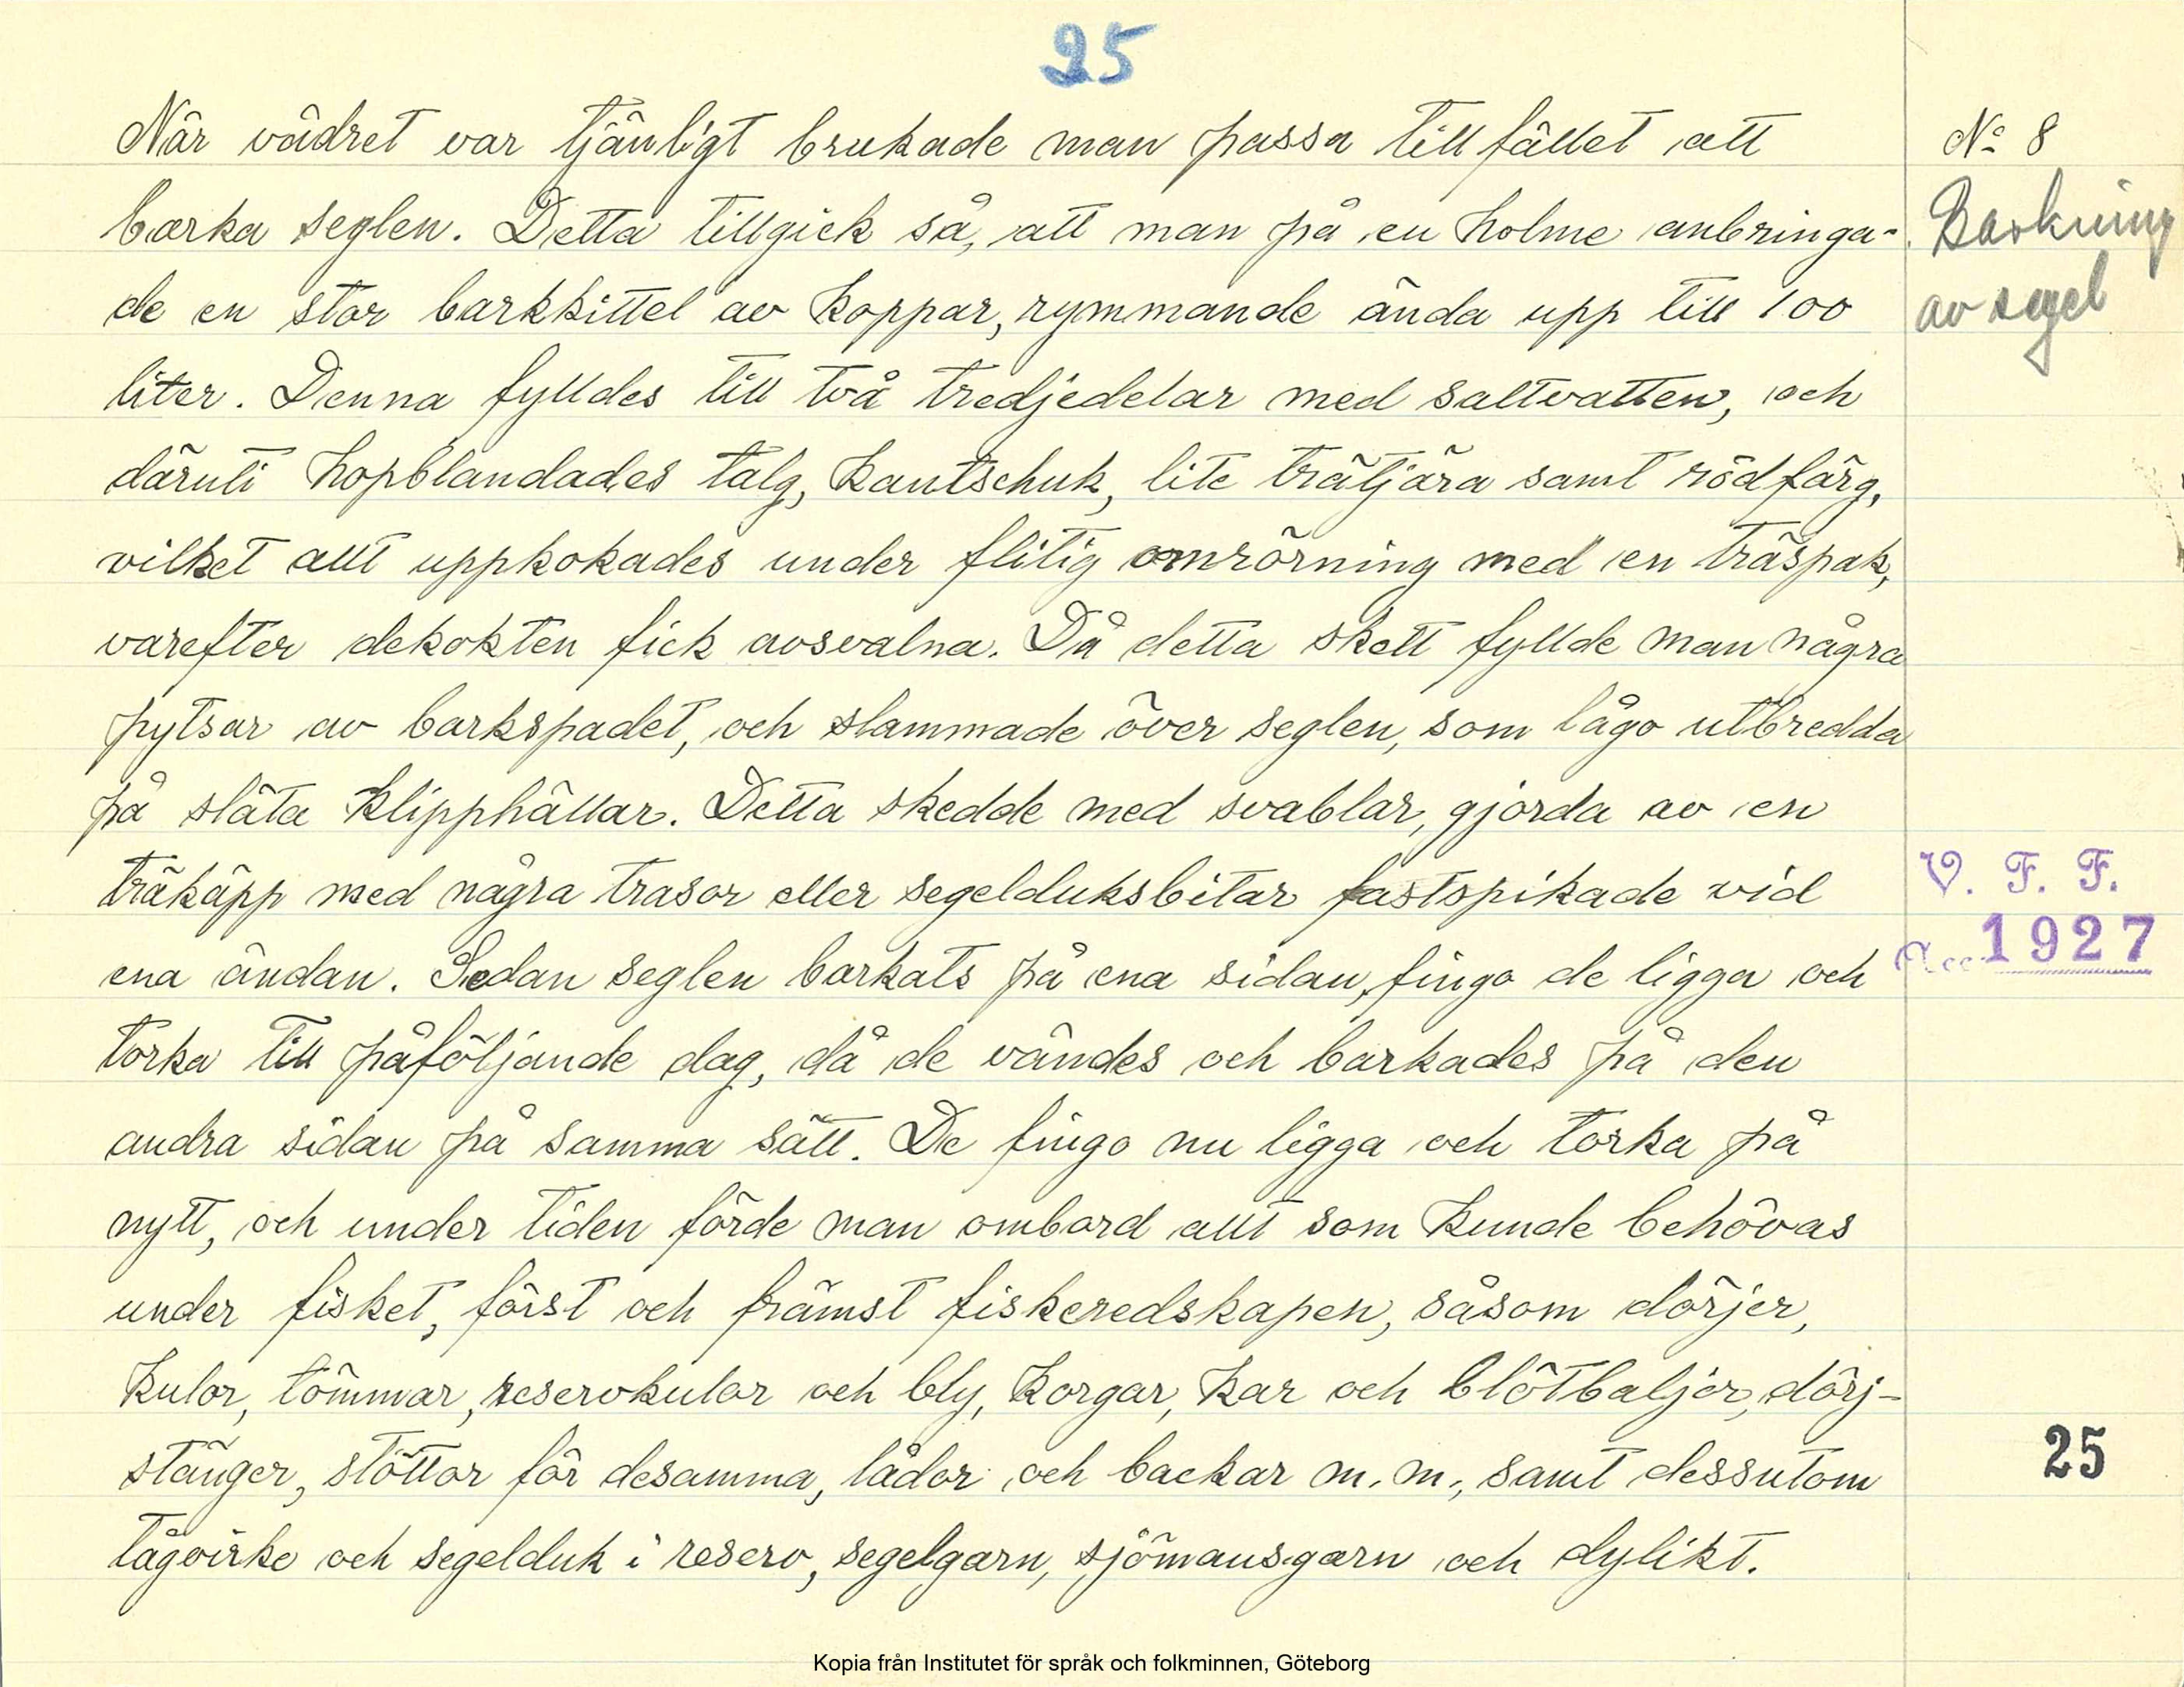 25
När vädret var tjänligt brukade man passa tillfället att
barka seglen. Detta tillgick så, att man på en holme anbringa-
de en stor barkkittel av koppar, rymmande ända upp till 100
liter. Denna fylldes till två tredjedelar med saltvatten, och
däruti hopblandades talg, kautschuk, lite trätjära samt rödfärg,
vilket allt uppkokades under flitig omrörning med en träspak,
varefter dekokten fick avsvalna. Då detta skett fyllde man några
pytsar av barkspadet, och slammade över seglen, som lågo utbredda
på släta klipphällar. Detta skedde med svablar, gjorda av en
träkäpp med några trasor eller segelduksbitar fastspikade vid
ena ändan. Sedan seglen barkats på ena sidan, fingo de ligga och
torka till påföljande dag, då de vändes och barkades på den
andra sidan på samma sätt. De fingo nu ligga och torka på
nytt, och under tiden förde man ombord allt som kunde behövas
under fisket, först och främst fiskeredskapen, såsom dörjer,
kulor, tömmar, reservkulor och bly, korgar, kar och blötbaljor, dörj-
stänger, stöttor för desamma, lådor och backar m. m., samt dessutom
tågvirke och segelduk i reserv, segelgarn, sjömansgarn och dylikt.
No 8
Barkning
av segel
V. F. F.
Acc. 1927
25
Kopia från Institutet för språk och folkminnen, Göteborg